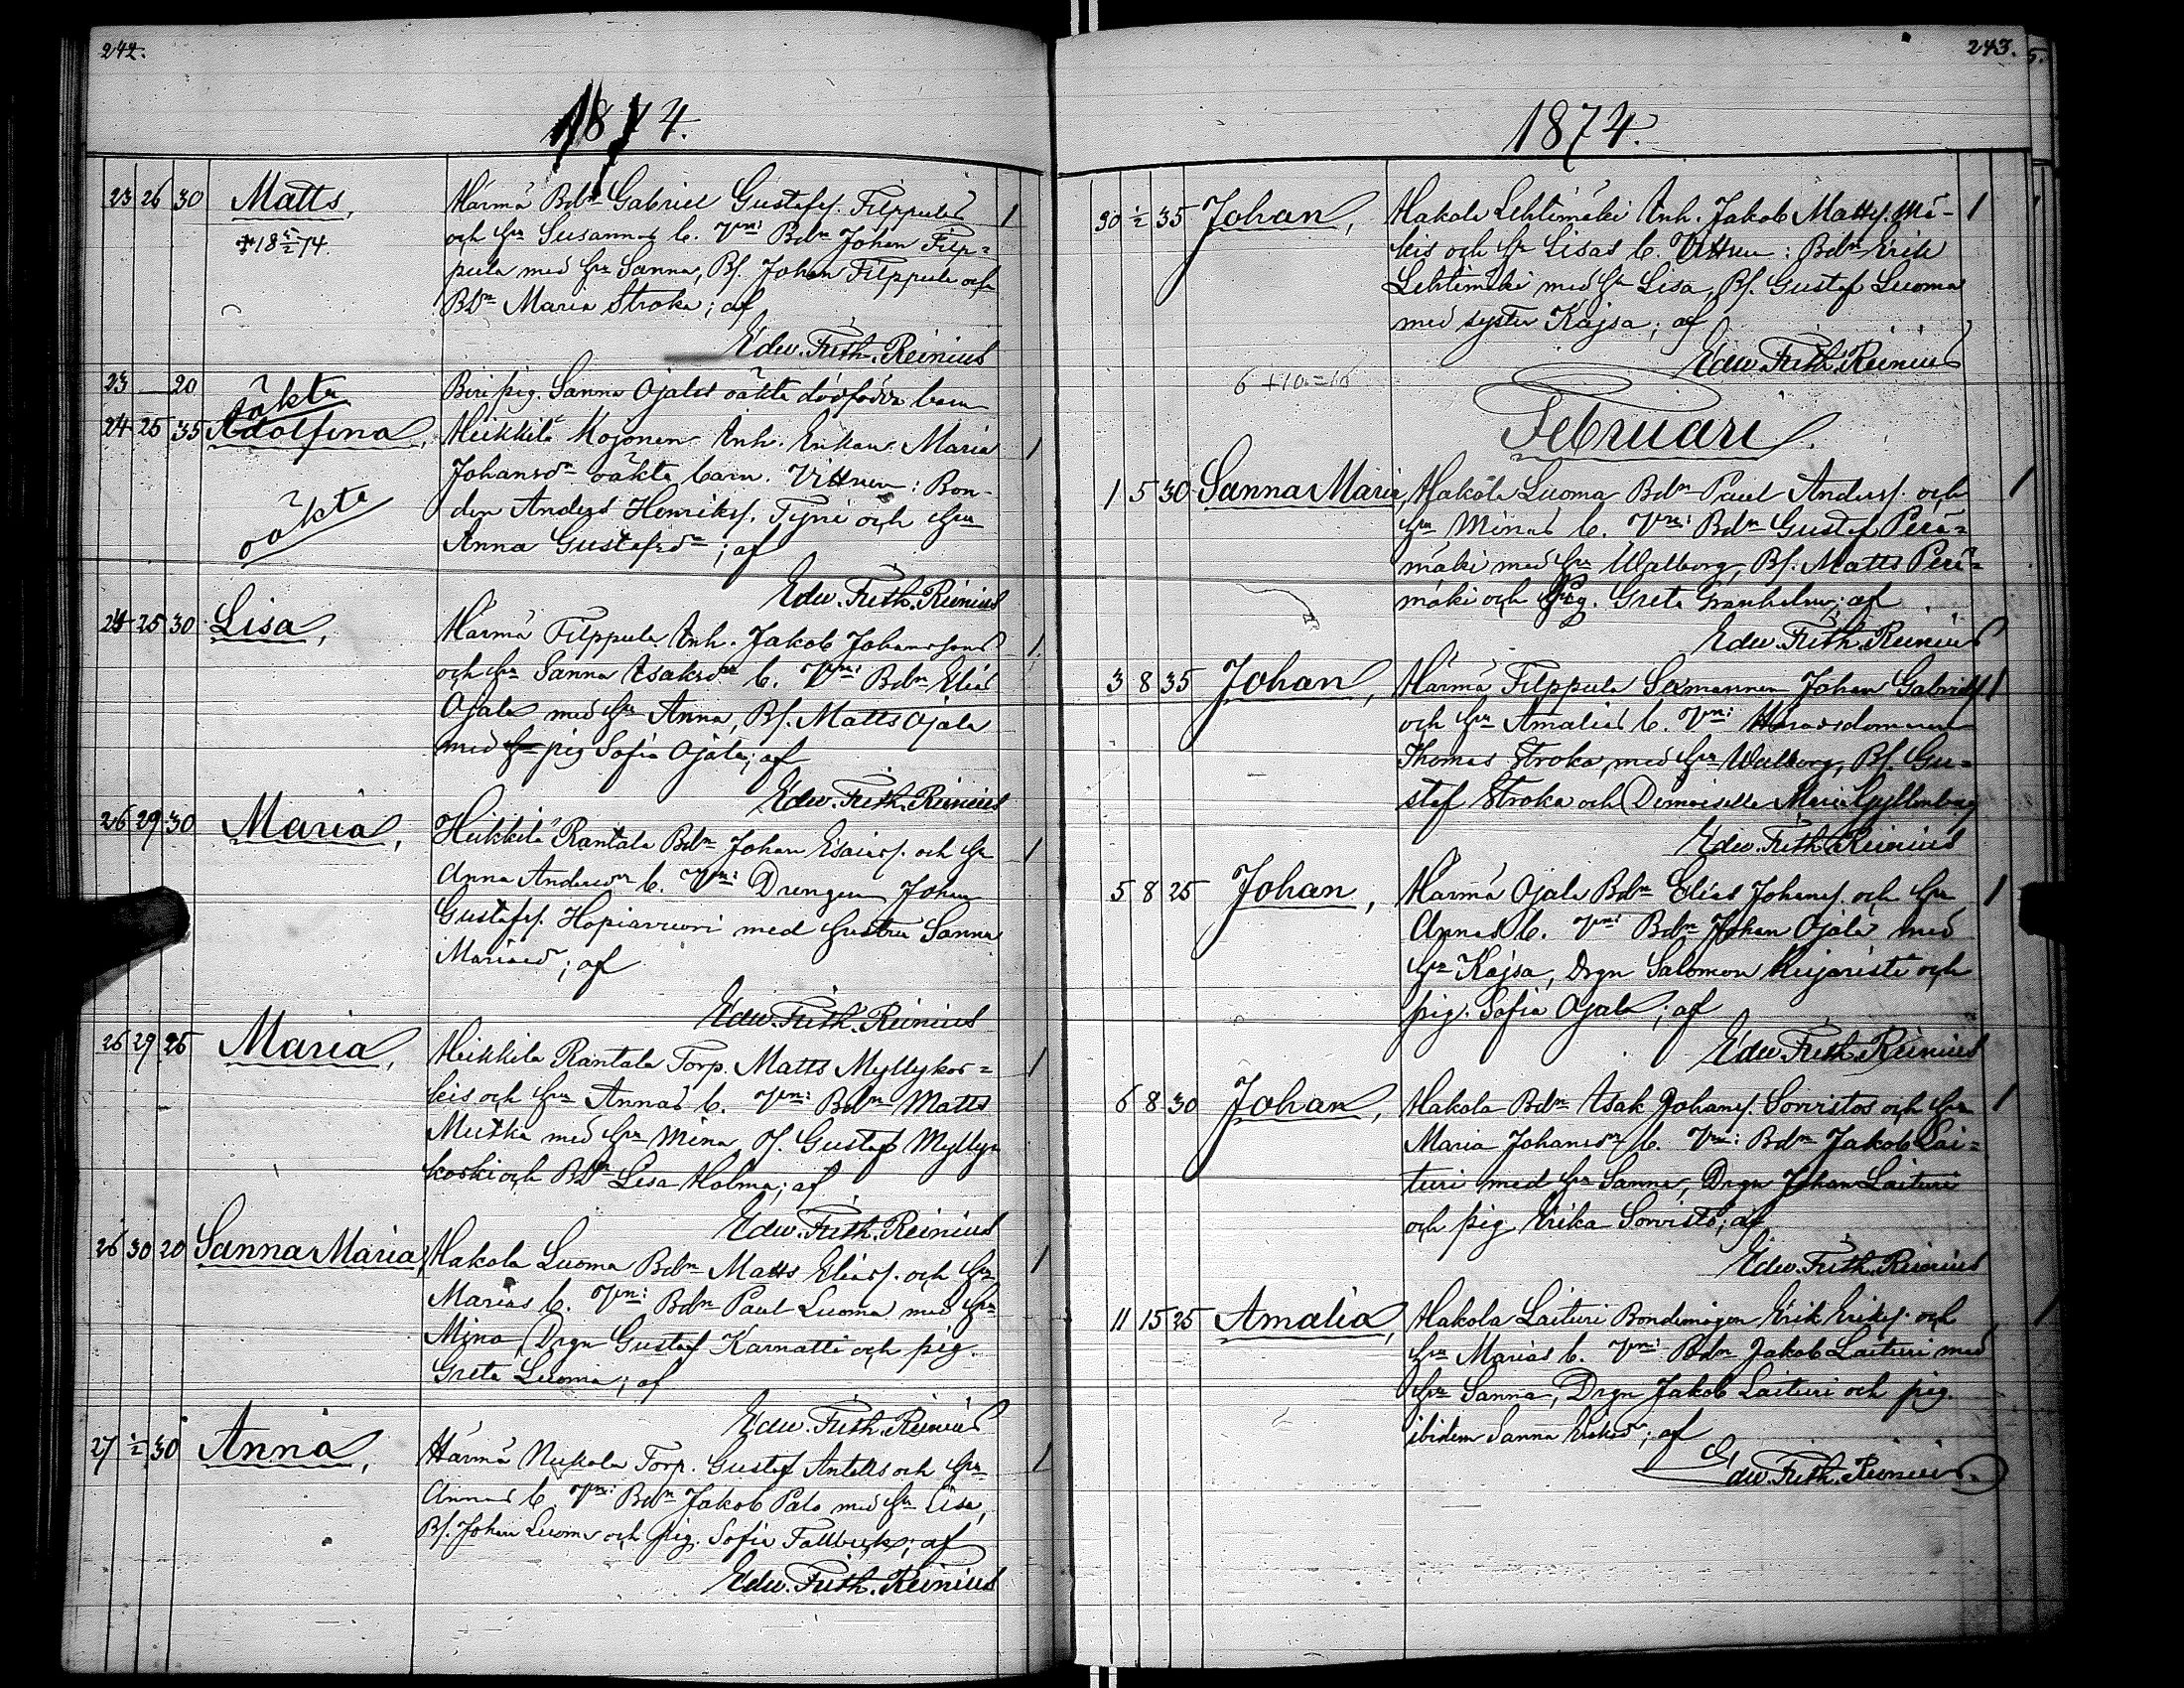 242.
1874.
23 26 30 Matts, Härmä Bdn Gabriel Gustafs. Filppulas 1
+ 18 5/2 74. och hu Susannas b. Vnn: Bdn Johan Filp=
pula med hu Sanna, Bs. Johan Filppula och
Bdr Maria Stroka; af
Edw. Frith. Reinius
23 — 20 oäkta Beri pig. Sanna Ojalas oäkta dödfödda barn
24 25 35 Adolfina, Heikkilä Kojonen Inh. Enkan Maria 1
Johansdr oäkta barn. Vittnen: Bon-
oäkta den Anders Henriks. Tyni och hu
Anna Gustafsdr; af
Edw. Frith. Reinius
24 25 30 Lisa, Härmä Filppula Inh. Jakob Johanssons 1
och hu Sanna Isaksdrs b. Vnn: Bdn Elias
Ojala med hu Anna, Bs. Matts Ojala
med pig Sofia Ojala; af
Edw. Frith. Reinius
26 29 30 Maria, Heikkilä Rantala Bdn Johan Esaias. och hu 1
Anna Andersdr b. Vnn: Drengen Johan
Gustafs. Hopiavuori med hustru Sanna
Mariasdr; af
Edw. Frith. Reinius
26 29 25 Maria, Heikkila Rantala Torp. Matts Myllykos= 1
kis och hu Annas b. Vnn: Bdn Matts
Mutka med hu Mina, Gustaf Mylly=
koski och Bdr Lisa Holma; af
Edw. Frith. Reinius
26 30 20 Sanna Maria, Hakola Luoma Bdn Matts Elias. och hu 1
Marias b. Vnn: Bdn Paul Luoma med hu
Mina, Drgn Gustaf Karnatti och pig.
Greta Luoma; af
Edw. Frith. Reinius
27 1/2 30 Anna, Härmä Nukala Torp. Gustaf Antells och hu 1
Annas b. Vnn: Bdn Jakob Palo med hu Lisa,
Bs. Johan Luoma och pig. Sofia Fallbäck; af
Edw. Frith. Reinius
243.
5.
1874.
30 1/2 35 Johan, Hakola Lehtimäki Inh. Jakob Matts. Mä- 1
kis och hu Lisas b. Vittnen: Bdn Erik
Lehtimäki med hu Lisa, Bs. Gustaf Luoma
med syster Kajsa; af
Edw. Frith. Reinius
6 + 10 = 16
Februari.
1 5 30 Sanna Maria, Hakola Luoma Bdn Paul Anders. och 1
hu Minas b. Vnn: Bdn Gustaf Perä=
mäki med hu Walborg, Bs. Matts Perä=
mäki och Pig. Greta Granholm; af
Edw. Frith. Reinius
3 8 35 Johan, Härmä Filppula Sexmannen Johan Gabriels. 1
och hu Amalias b. Vnn: Häradsdomaren
Thomas Stroka med hu Walborg, Bs. Gu=
staf Stroka och Demoiselle Maria Gyllenberg
Edw. Frith. Reinius
5 8 25 Johan, Härmä Ojala Bdn Elias Johans. och hu 1
Annas b. Vnn: Bdn Johan Ojala med
hu Kajsa, Drgn Salomon Kujaristi och
pig. Sofia Ojala; af
Edw. Frith. Reinius
6 8 30 Johan, Hakola Bdn Isak Johans. Sorvistos och hu 1
Maria Johansdrs b. Vnn: Bdn Jakob Lai=
turi med hu Sanna, Drgn Johan Laituri
och pig Erika Sorvisto; af
Edw. Frith. Reinius
11 15 25 Amalia, Hakola Laituri Bondemågen Erik Eriks. och 1
hu Marias b. Vnn: Bdn Jakob Laituri med
hu Sanna, Drgn Jakob Laituri och pig.
ibidem Sanna Eriksdr; af
Edw. Frith. Reinius